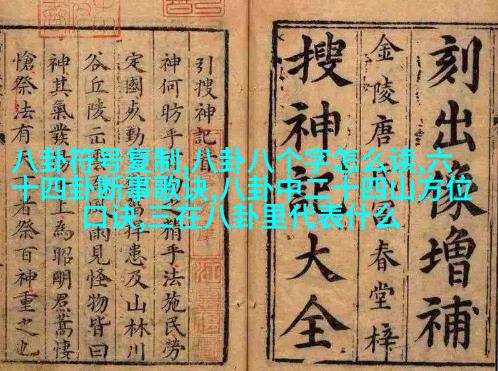 八卦符号复制,八卦八个字怎么读,六
十四卦断事歌诀,八卦中二十四山方位
口诀,三在八卦里代表什么
刻出像增補
金陵唐春堂梓
搜神記大全
引搜神記首
神何昉乎乎法施民勞
定國勤捍患及山林川
谷丘陵雨見怪物皆曰
神其氣發揚上為昭明焄蒿悽
愴祭法有者祭百神重之也